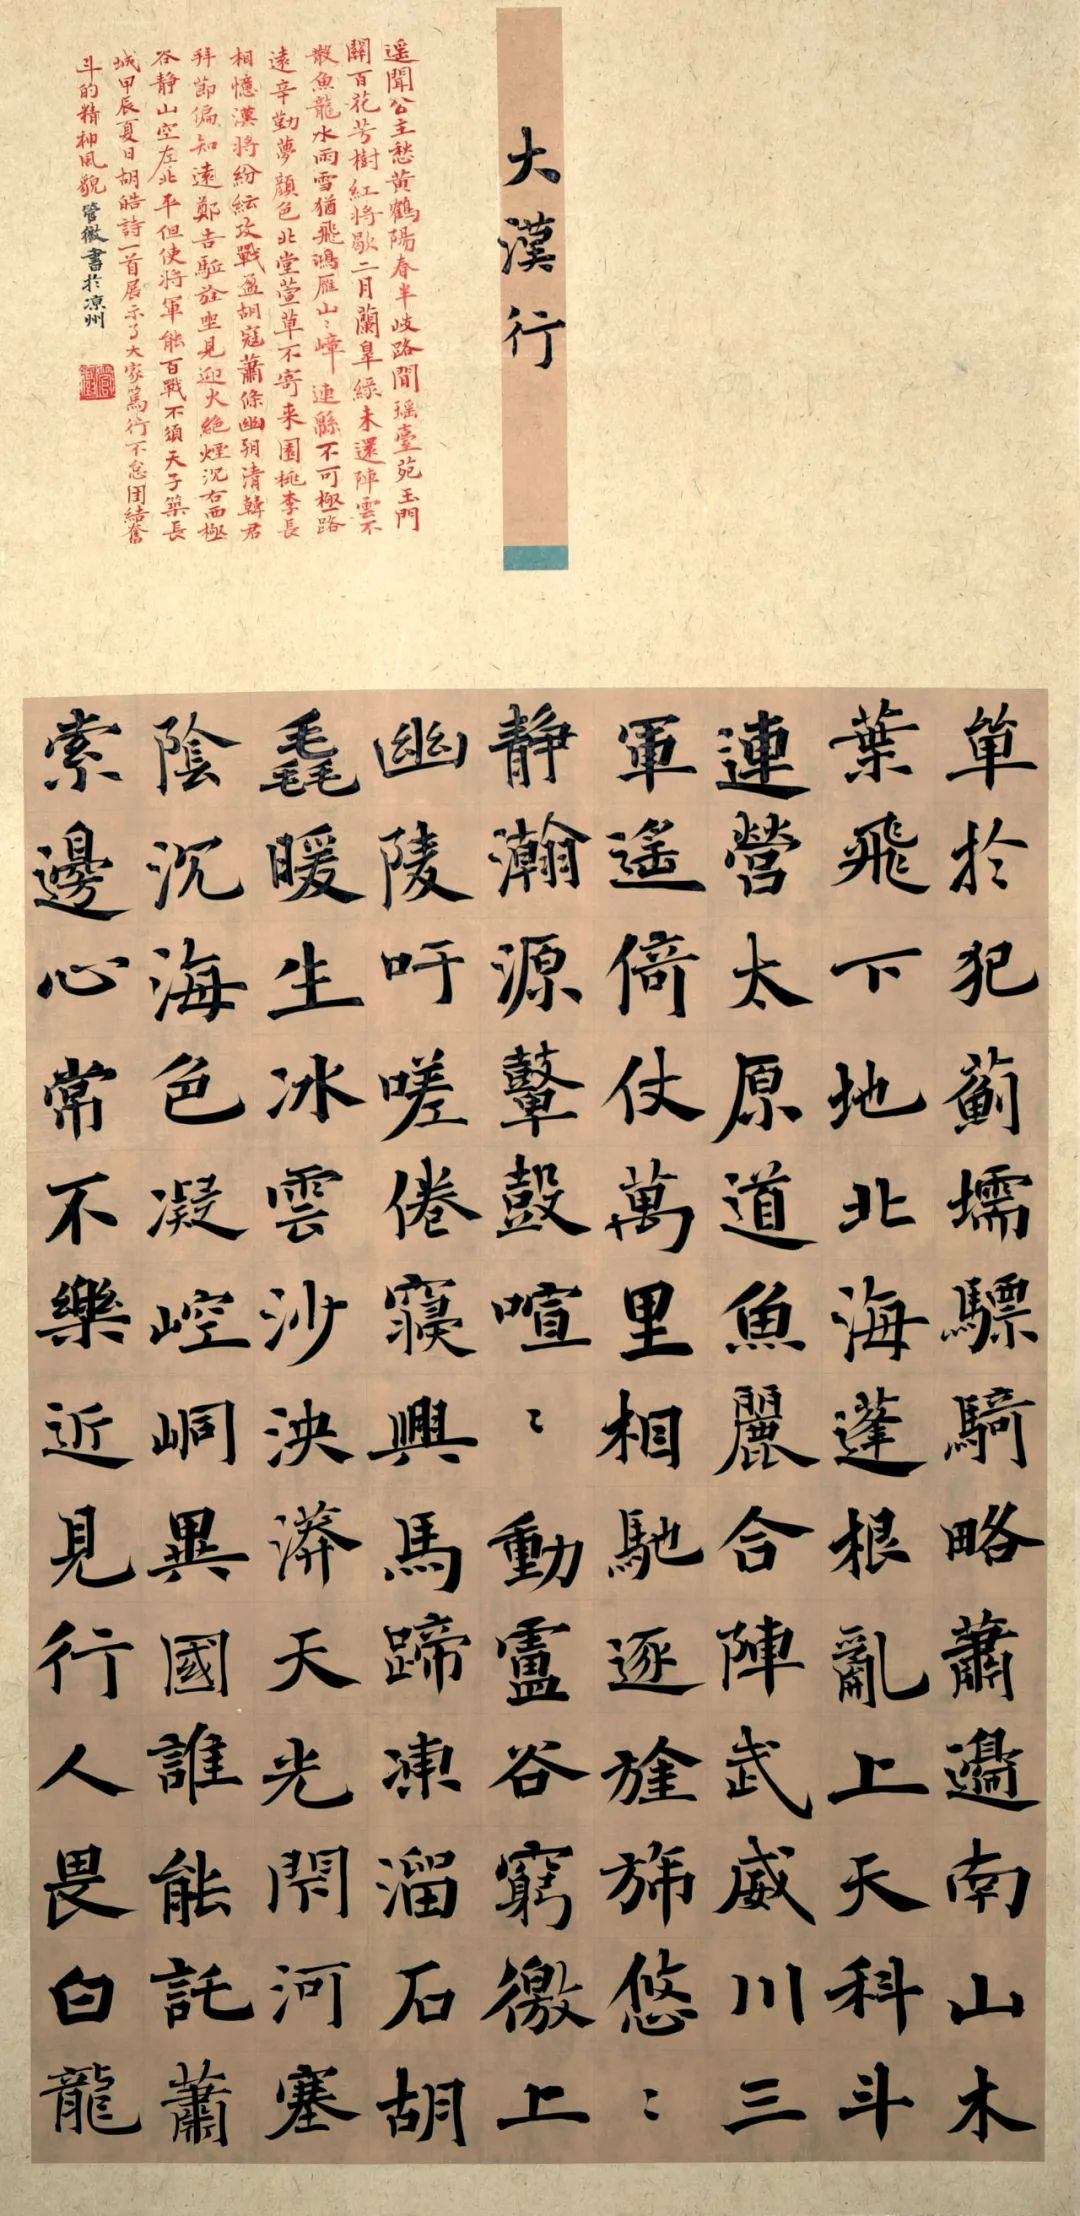 大漢行
單於犯薊壖驃騎略蕭邊南山木
葉飛下地北海蓬根亂上天科斗
連營太原道魚麗合陣武威川三
軍遥倚仗萬里相馳逐旌旆悠〻
静瀚源鼙鼓喧〻動盧谷窮徼上
幽陵吁嗟倦寢興馬蹄凍溜石胡
毳暖生冰雲沙泱漭天光閉河塞
陰沉海色凝崆峒異國誰能託蕭
索邊心常不樂近見行人畏白龍
遥聞公主愁黄鶴陽春半岐路間瑶臺苑玉門
關百花芳樹紅將歇二月蘭皋緑未還陣雲不
散魚龍水雨雪猶飛鴻雁山〻嶂連緜不可極路
遠辛勤夢顔色北堂萱草不寄来園桃李長
相憶漢將紛紜攻戰盈胡寇蕭條幽朔清韓君
拜節偏知遠鄭吉駈旌坐見迎火絶煙沉右西極
谷静山空左北平但使將軍能百戰不須天子築長
城甲辰夏日胡皓詩一首展示了大家篤行不怠团結奮
斗的精神風貌管徽書於凉州